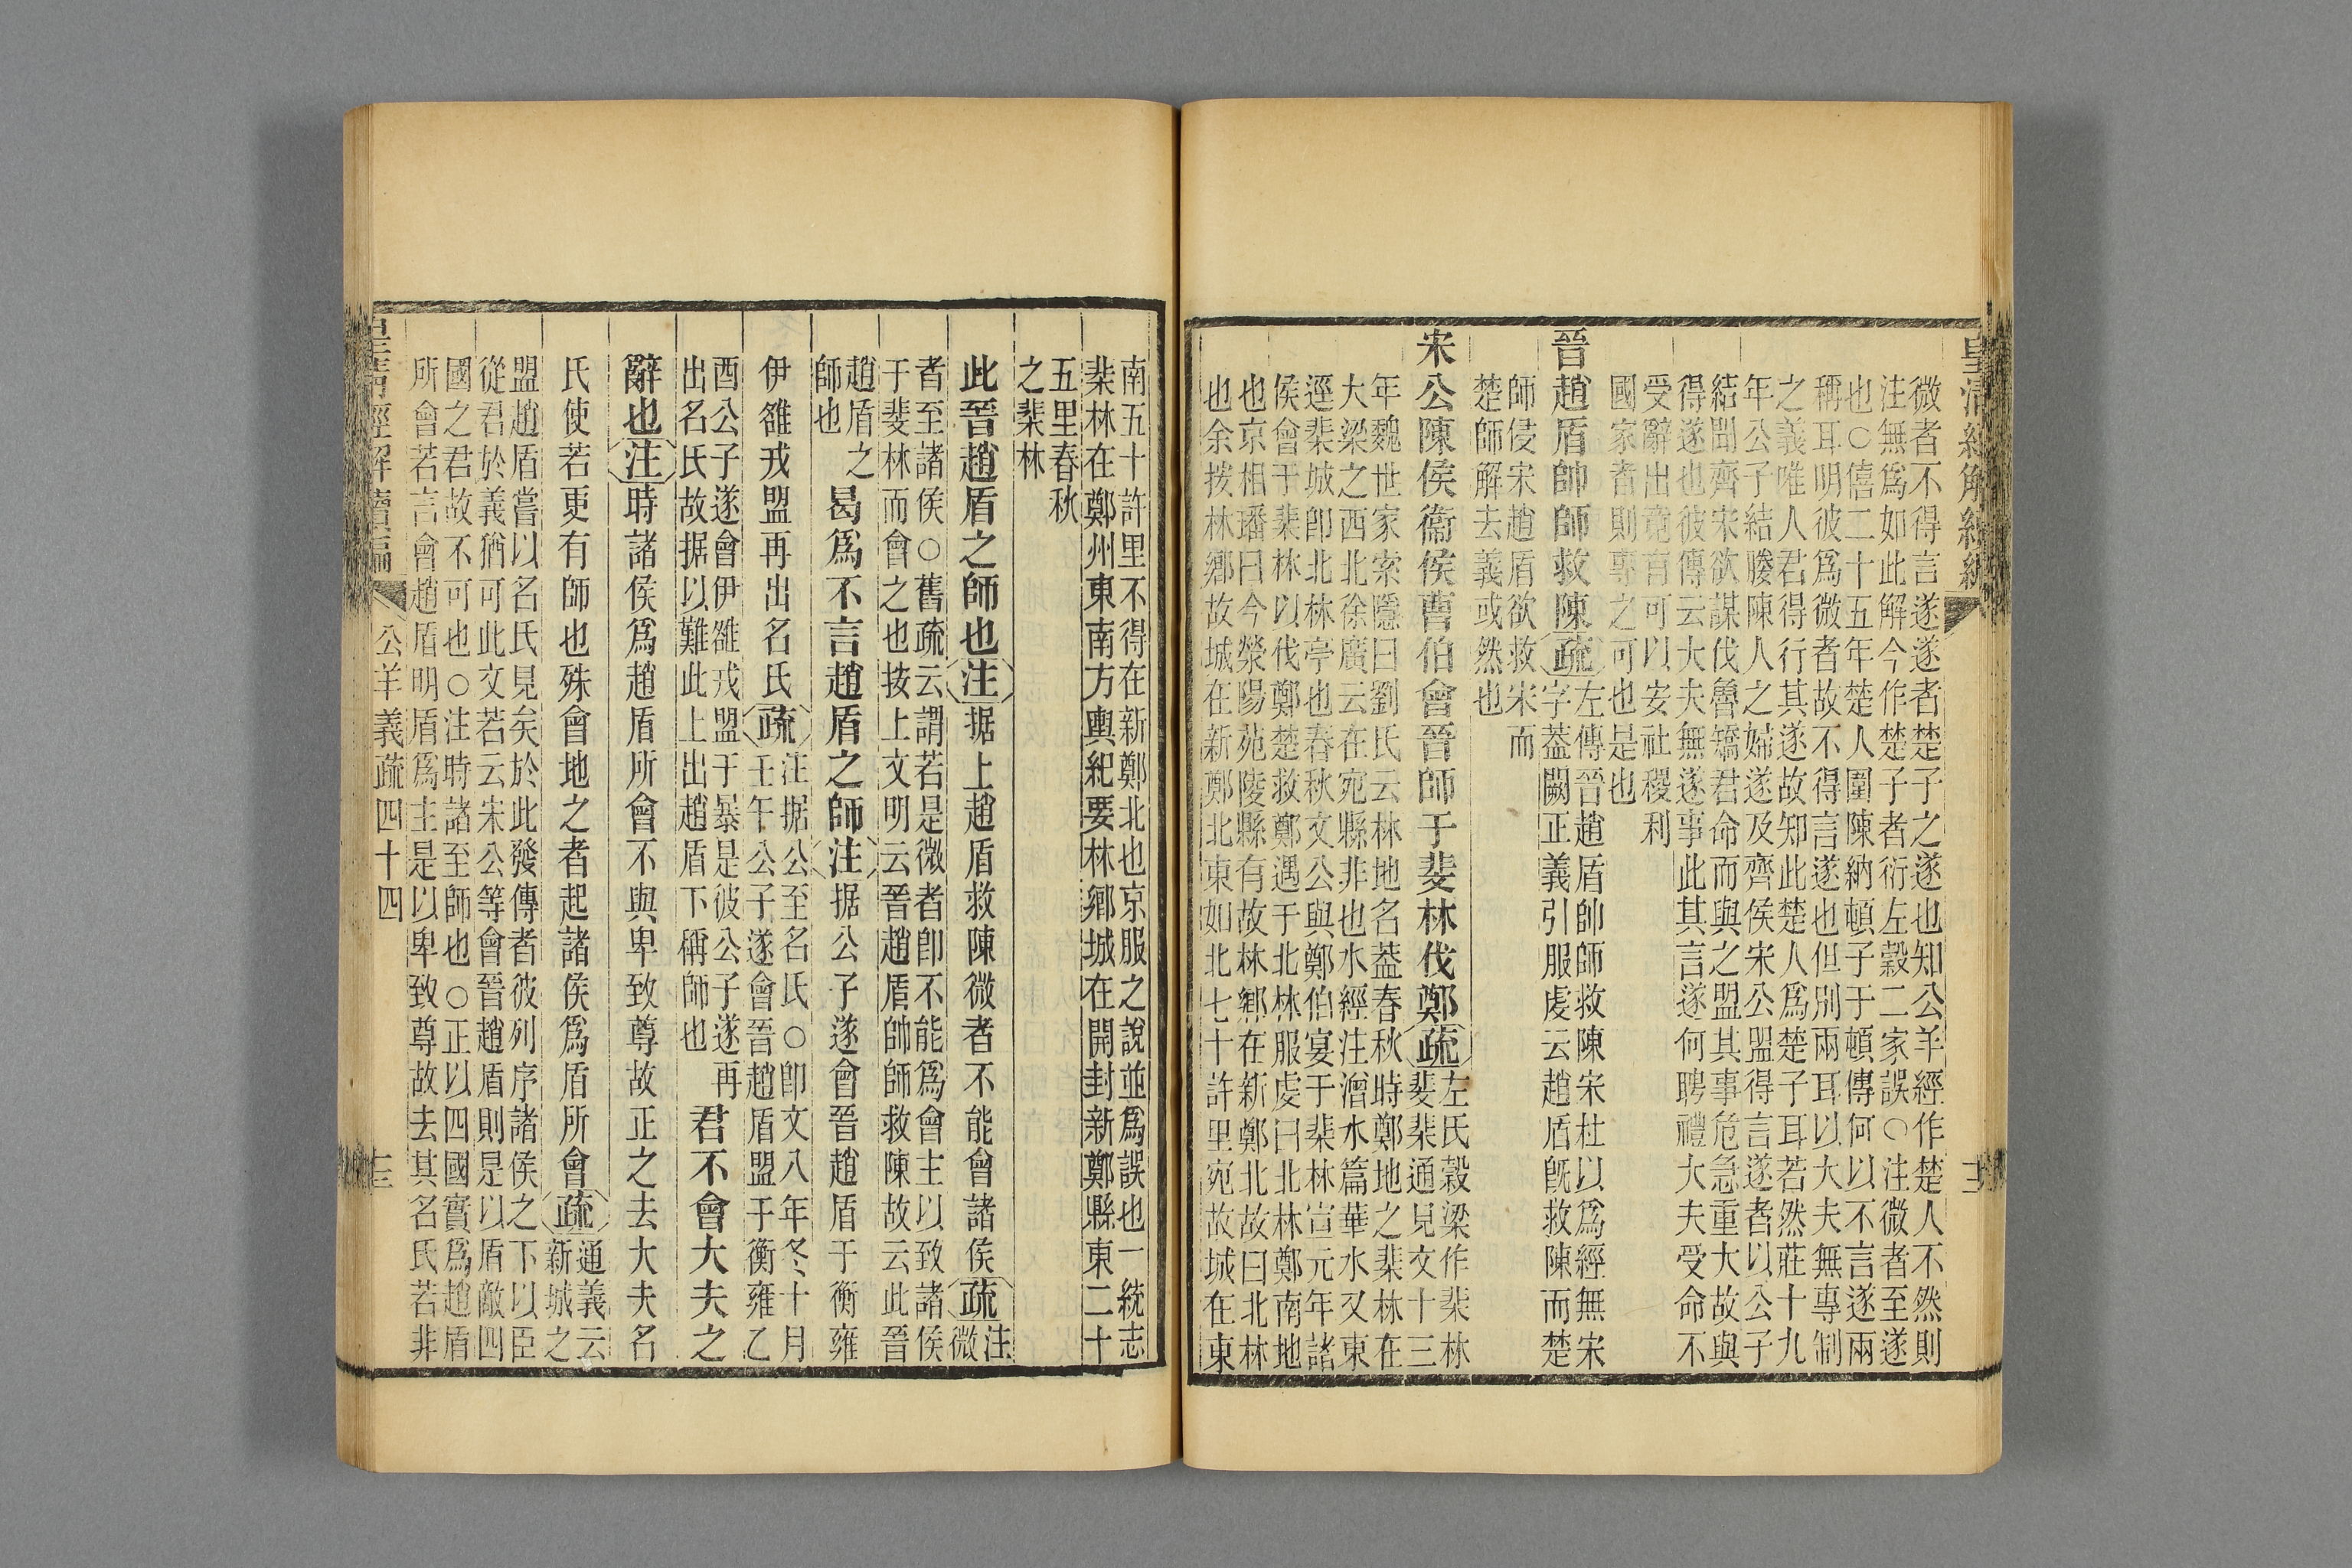 微者不得言遂遂者楚子之遂也知公羊經作楚人不然則
注無爲如此解今作楚子者衍左穀二家誤○注微者至遂
也○僖二十五年楚人圍陳納頓子于頓傳何以不言遂兩
稱耳明彼爲微者故不得言遂也但別兩耳以大夫無專制
之義唯人君得行其遂故知此楚人爲楚子耳若然莊十九
年公子結媵陳人之婦遂及齊侯宋公盟得言遂者以公子
結聞齊宋欲謀伐魯矯君命而與之盟其事危急重大故與
得遂也彼傳云大夫無遂事此其言遂何聘禮大夫受命不
受辭出竟有可以安社稷利
國家者則專之可也是也
晉趙盾帥師救陳
疏
左傳晉趙盾帥師救陳宋杜以爲經無宋
字葢闕正義引服虔云趙盾旣救陳而楚
師侵宋趙盾欲救宋而
楚師解去義或然也
宋公陳侯衞侯曹伯會晉師于斐林伐鄭
疏
左氏穀梁作棐林
斐棐通見文十三
年魏世家索隱曰劉氏云林地名葢春秋時鄭地之棐林在
大梁之西北徐廣云在宛縣非也水經注潧水篇華水又東
逕棐城卽北林亭也春秋文公與鄭伯宴于棐林宣元年諸
侯會于棐林以伐鄭楚救鄭遇于北林服虔曰北林鄭南地
也京相璠曰今滎陽苑陵縣有故林鄉在新鄭北故曰北林
也余按林鄉故城在新鄭北東如北七十許里宛故城在東
南五十許里不得在新鄭北也京服之說並爲誤也一統志
棐林在鄭州東南方輿紀要林鄉城在開封新鄭縣東二十
五里春秋
之棐林
此晉趙盾之師也
注
据上趙盾救陳微者不能會諸侯
疏
注
微
者至諸侯○舊疏云謂若是微者卽不能爲會主以致諸侯
于斐林而會之也按上文明云晉趙盾帥師救陳故云此晉
趙盾之
師也
曷爲不言趙盾之師
注
据公子遂會晉趙盾于衡雍
伊雒戎盟再出名氏
疏
注据公至名氏○卽文八年冬十月
壬午公子遂會晉趙盾盟于衡雍乙
酉公子遂會伊雒戎盟于暴是彼公子遂再
出名氏故据以難此上出趙盾下稱師也
君不會大夫之
辭也
注
時諸侯爲趙盾所會不與卑致尊故正之去大夫名
氏使若更有師也殊會地之者起諸侯爲盾所會
疏
通義云
新城之
盟趙盾嘗以名氏見矣於此發傳者彼列序諸侯之下以臣
從君於義猶可此文若云宋公等會晉趙盾則是以盾敵四
國之君故不可也○注時諸至師也○正以四國實爲趙盾
所會若言會趙盾明盾爲主是以卑致尊故去其名氏若非
公羊義疏四十四